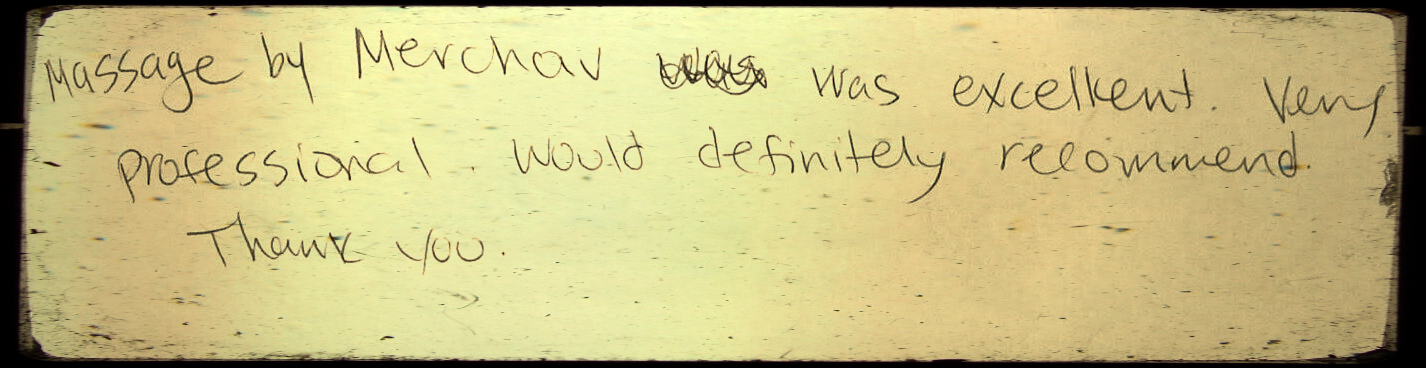 Massage by Merchav was excellent. Very
professional. Would definitely recommend.
Thank you.